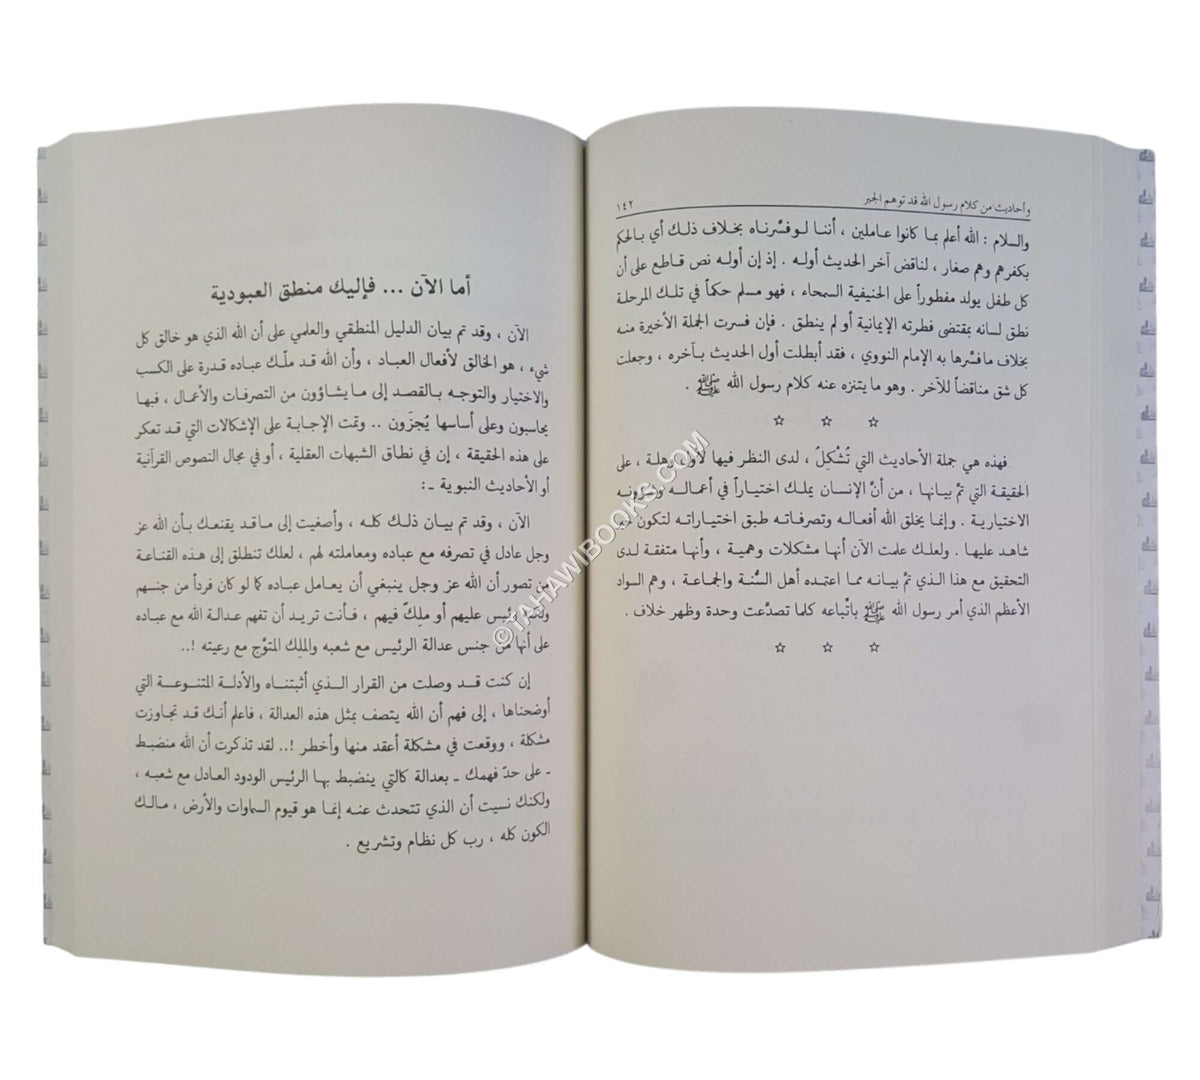 وأحاديث من كلام رسول الله قد توهم الجبر ١٤٢
والسلام : الله أعلم بما كانوا عاملين ، أننا لو فسّرناه بخلاف ذلك أي بالحكم
بكفرهم وهم صغار ، لناقض آخر الحديث أوله . إذ إن أوله نص قاطع على أن
كل طفل يولد مفطوراً على الحنيفية السمحاء ، فهو مسلم حكماً في تلك المرحلة
نطق لسانه بمقتضى فطرته الإيمانية أو لم ينطق . فإن فسرت الجملة الأخيرة منه
بخلاف ما فسّرها به الإمام النووي ، فقد أبطلت أول الحديث بآخره ، وجعلت
كل شق مناقضاً للآخر . وهو ما يتنزه عنه كلام رسول الله ﷺ .
☆ ☆ ☆
فهذه هي جملة الأحاديث التي تُشْكِلُ ، لدى النظر فيها لأول وهلة ، على
الحقيقة التي تمّ بيانها ، من أنّ الإنسان يملك اختياراً في أعماله وشؤونه
الاختيارية . وإنما يخلق الله أفعاله وتصرفاته طبق اختياراته لتكون
شاهد عليها . ولعلك علمت الآن أنها مشكلات وهمية ، وأنها متفقة لدى
التحقيق مع هذا الذي تمّ بيانه مما اعتمده أهل السُّنة والجماعة ، وهم السواد
الأعظم الذي أمر رسول الله ﷺ باتّباعه كلما تصدّعت وحدة وظهر خلاف .
☆ ☆ ☆
أما الآن ... فإليك منطق العبودية
الآن ، وقد تم بيان الدليل المنطقي والعلمي على أن الله الذي هو خالق كل
شيء ، هو الخالق لأفعال العباد ، وأن الله قد ملّك عباده قدرة على الكسب
والاختيار والتوجه بالقصد إلى ما يشاؤون من التصرفات والأعمال ، فبها
يحاسبون وعلى أساسها يُجزَون .. وتمت الإجابة على الإشكالات التي قد تعكر
على هذه الحقيقة ، إن في نطاق الشبهات العقلية ، أو في مجال النصوص القرآنية
أو الأحاديث النبوية ـ :
الآن ، وقد تم بيان ذلك كله ، وأصغيت إلى ما قد يقنعك بأن الله عز
وجل عادل في تصرفه مع عباده ومعاملته لهم ، لعلك تنطلق إلى هذه القناعة
من تصور أن الله عز وجل ينبغي أن يعامل عباده كما لو كان فرداً من جنسهم
ولكنه رئيس عليهم أو ملكٌ فيهم ، فأنت تريد أن تفهم عدالة الله مع عباده
على أنها من جنس عدالة الرئيس مع شعبه والملِك المتوّج مع رعيته !..
إن كنت قد وصلت من القرار الذي أثبتناه والأدلة المتنوعة التي
أوضحناها ، إلى فهم أن الله يتصف بمثل هذه العدالة ، فاعلم أنك قد تجاوزت
مشكلة ، ووقعت في مشكلة أعقد منها وأخطر !.. لقد تذكرت أن الله منضبط
ـ على حدّ فهمك ـ بعدالة كالتي ينضبط بها الرئيس الودود العادل مع شعبه ،
ولكنك نسيت أن الذي تتحدث عنه إنما هو قيوم السماوات والأرض ، مالك
الكون كله ، رب كل نظام وتشريع .
©TAHAWIBOOKS.COM